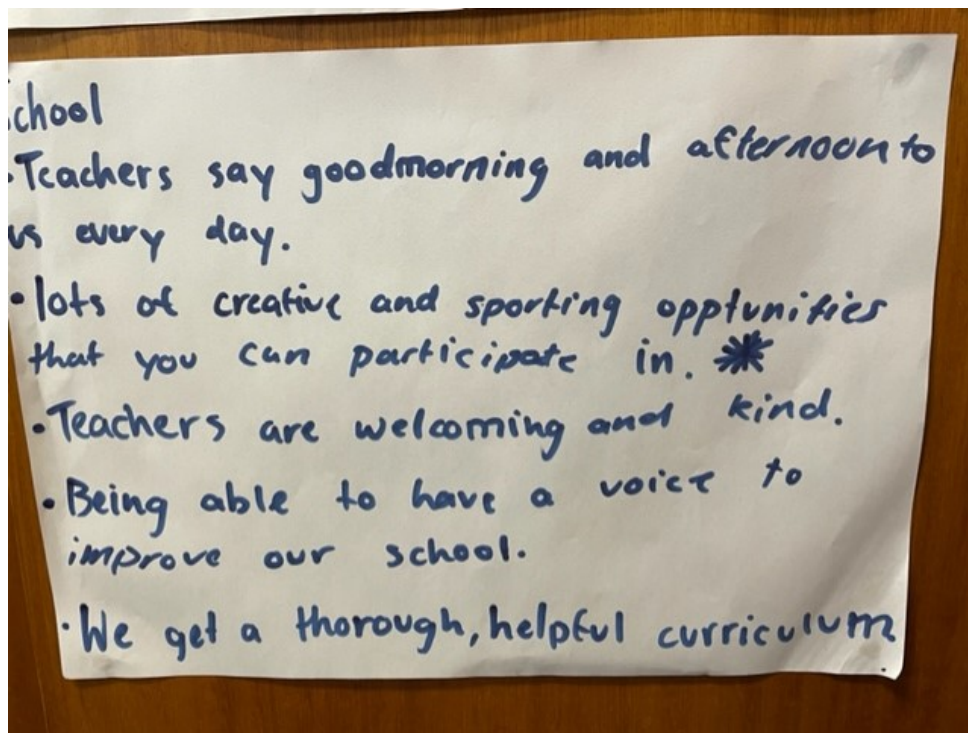 School
• Teachers say goodmorning and afternoon to
us every day.
• lots of creative and sporting opptunities
that you can participate in. ✳
• Teachers are welcoming and kind.
• Being able to have a voice to
improve our school.
• We get a thorough, helpful curriculum